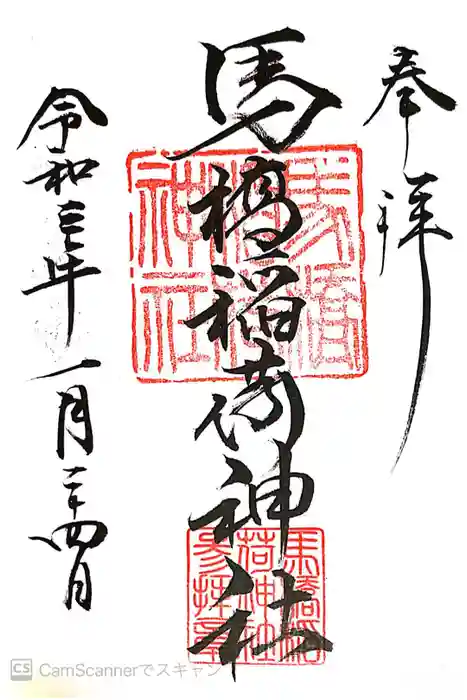 奉拝
馬橋稲荷神社
令和三年一月二十四日
馬橋稲荷神社
馬橋稲荷神社参拝章
CS CamScannerでスキャン